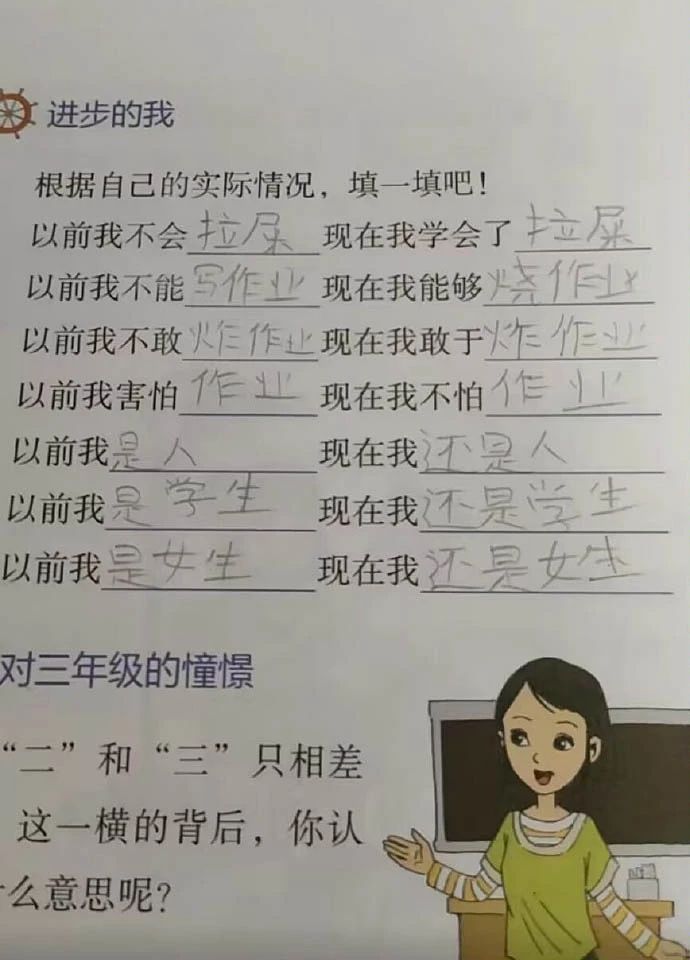 进步的我
根据自己的实际情况，填一填吧！
以前我不会拉屎 现在我学会了拉屎
以前我不能写作业 现在我能够烧作业
以前我不敢炸作业 现在我敢于炸作业
以前我害怕作业 现在我不怕作业
以前我是人 现在我还是人
以前我是学生 现在我还是学生
以前我是女生 现在我还是女生
对三年级的憧憬
“二”和“三”只相差
这一横的背后，你认
么意思呢？